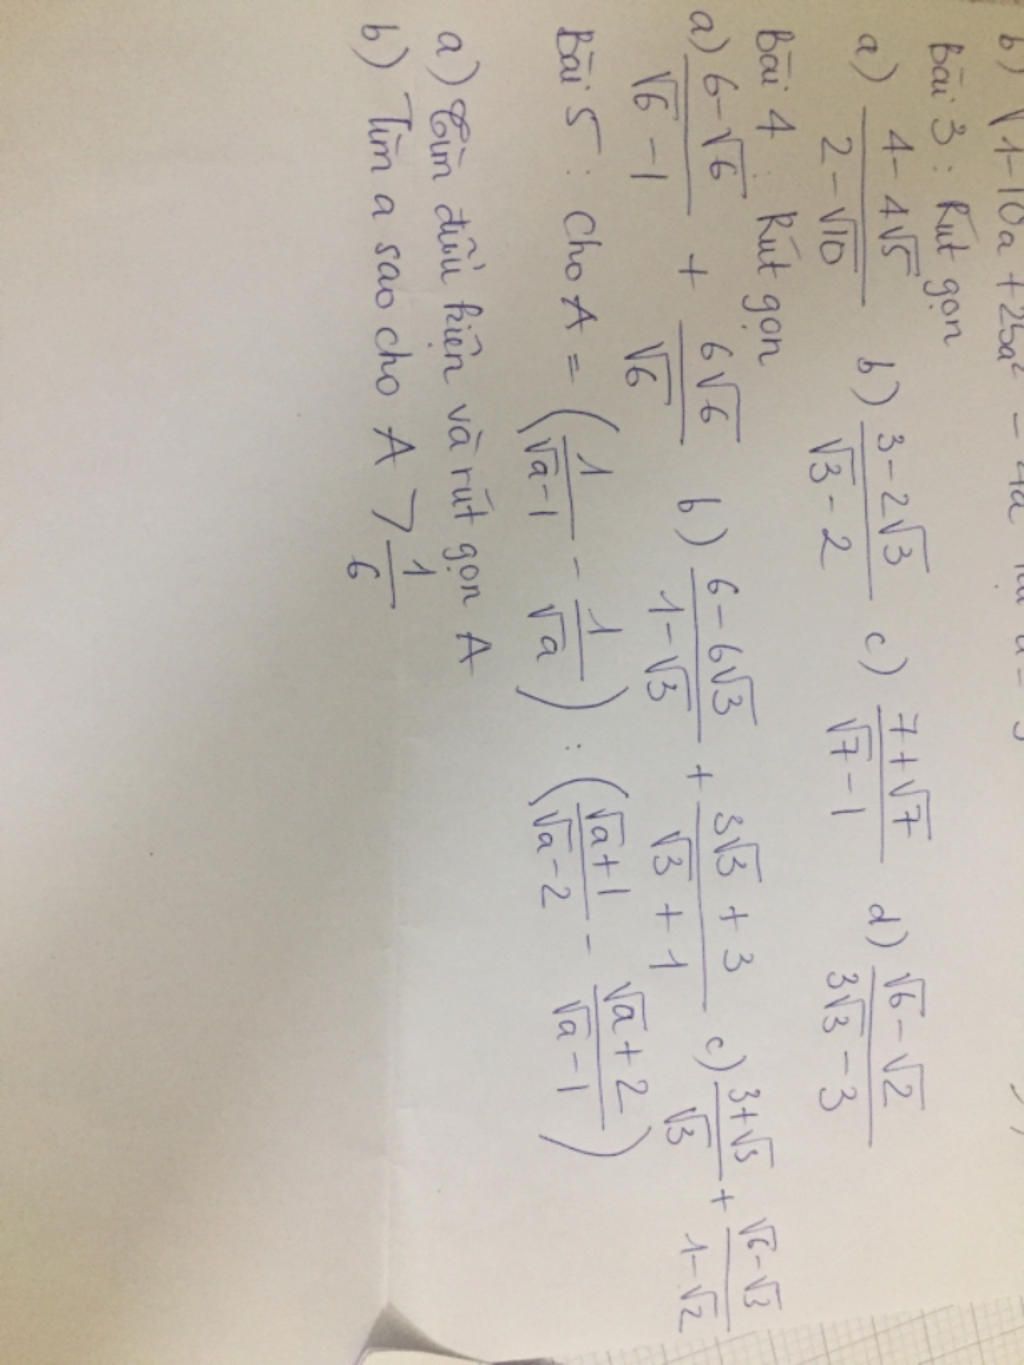 b) √1-10a+25a² - 4a
Bài 3: Rút gọn
a) (4-4√5)/(2-√10) b) (3-2√3)/(√3-2) c) (7+√7)/(√7-1) d) (√6-√2)/(3√3-3)
Bài 4: Rút gọn
a) (6-√6)/(√6-1) + (6√6)/√6 b) (6-6√3)/(1-√3) + (3√3+3)/(√3+1) c) (3+√3)/√3 + (√6-√3)/(1-√2)
Bài 5: Cho A = (1/(√a-1) - 1/√a) : ((√a+1)/(√a-2) - (√a+2)/(√a-1))
a) Tìm điều kiện và rút gọn A
b) Tìm a sao cho A > 1/6